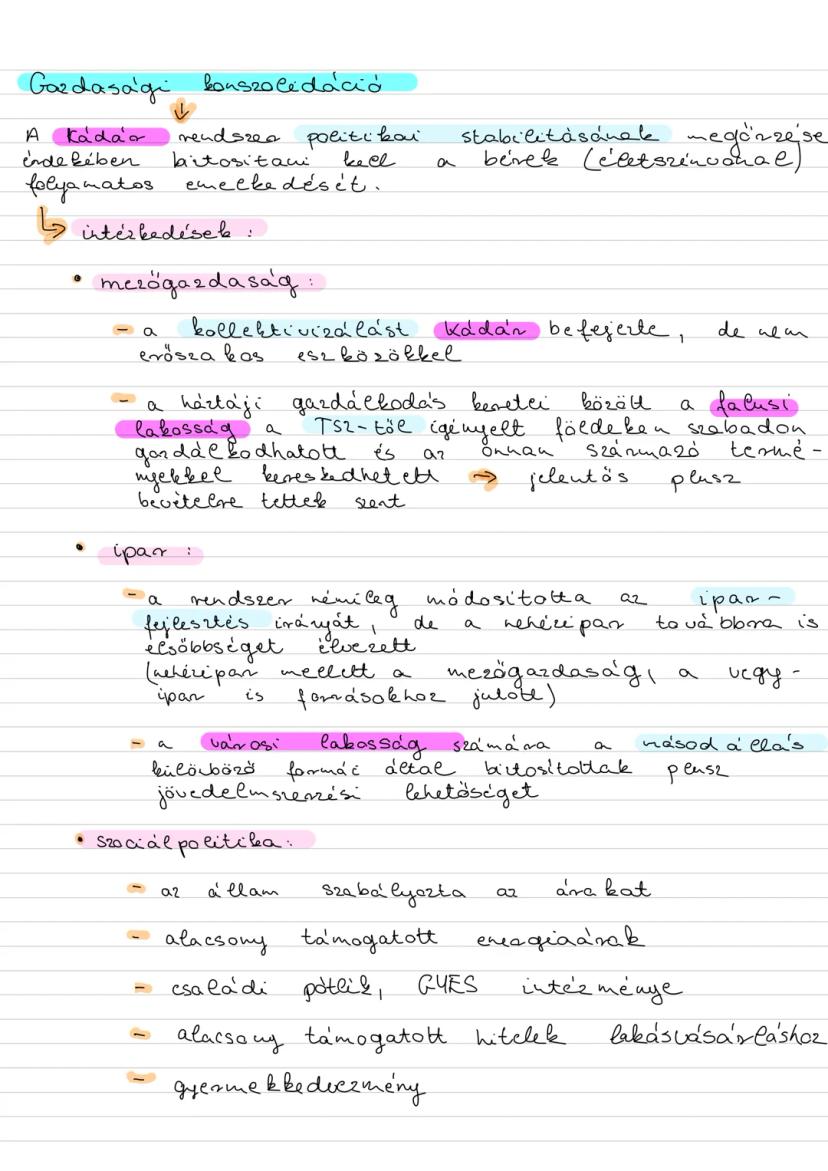 Gazdasági konszolidáció
↓
A Kádár rendszer politikai stabilitásának megőrzése
érdekében bitosítani kell a bérek (életszínvonal)
folyamatos emelkedését.
↳ intézkedések :
• mezőgazdaság :
- a kollektivizálást Kádár befejezte, de nem
erőszakos eszközökkel
- a háztáji gazdálkodás keretei között a falusi
lakosság a TSZ-től igényelt földeken szabadon
gazdálkodhatott és az onnan származó termé-
nyekkel kereskedhetett → jelentős plusz
bevételre tettek szert
• ipar :
- a rendszer némileg módosította az ipar-
fejlesztés irányát, de a nehézipar továbbra is
elsőbbséget élvezett
(nehézipar mellett a mezőgazdaság, a vegy-
ipar is forrásokhoz jutott)
- a városi lakosság számára a másodállás
különböző formái által bitosítottak plusz
jövedelmszerzési lehetőséget
• szociálpolitika :
- az állam szabályozta az árakat
- alacsony támogatott energiaárak
- családi pótlék, GYES intézménye
- alacsony támogatott hitelek lakásvásárláshoz
- gyermekkedvezmény